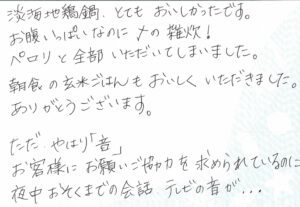 淡海地鶏鍋、とても おいしかったです。
お腹いっぱいなのに 〆の 雑炊!
ペロリと全部 いただいてしまいました。
朝食の玄米ごはんも おいしく いただきました。
ありがとうございます。
ただ やはり「音」
お客様に お願いご協力を 求められているのに
夜中おそくまでの会話 テレビの音が...